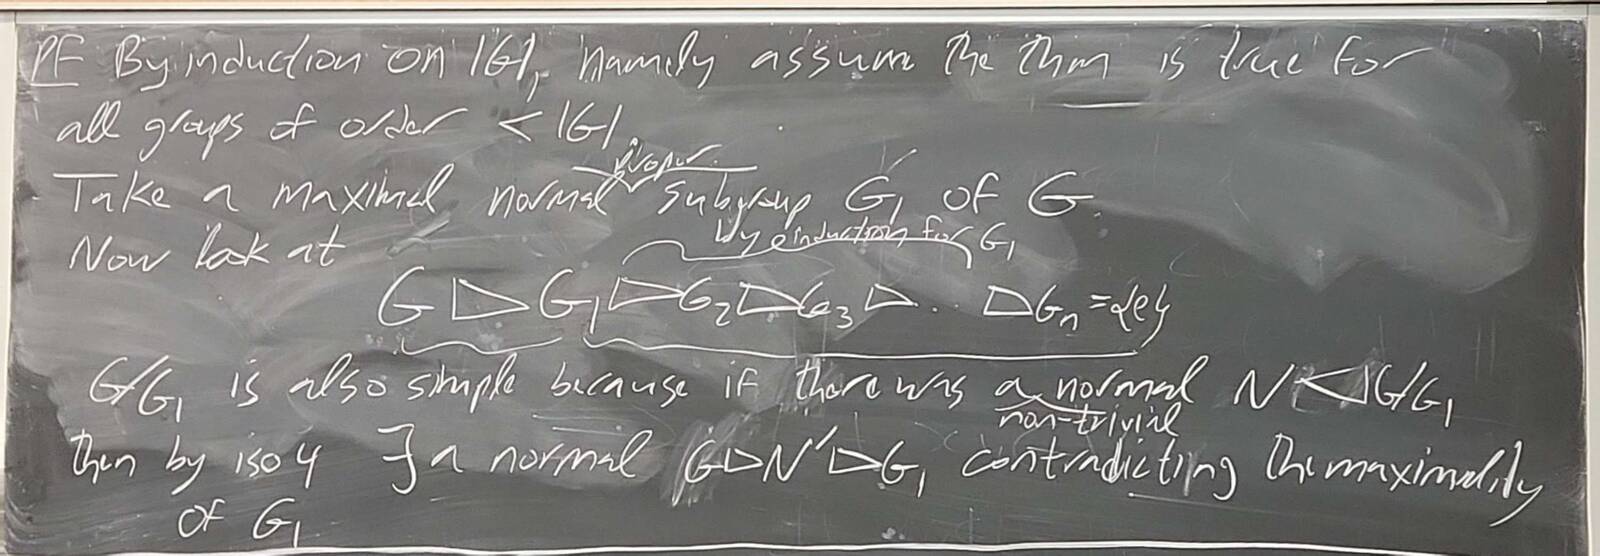 PF By induction on |G|, namely assume the thm is true for
all groups of order < |G|.
proper
Take a maximal normal subgroup G₁ of G.
by induction for G₁
Now look at
G ▷ G₁ ▷ G₂ ▷ G₃ ▷ .. ▷ Gₙ = {e}
G/G₁ is also simple because if there was a normal N ◁ G/G₁
non-trivial
then by iso 4 ∃ a normal G ▷ N' ▷ G₁ contradicting the maximality
of G₁